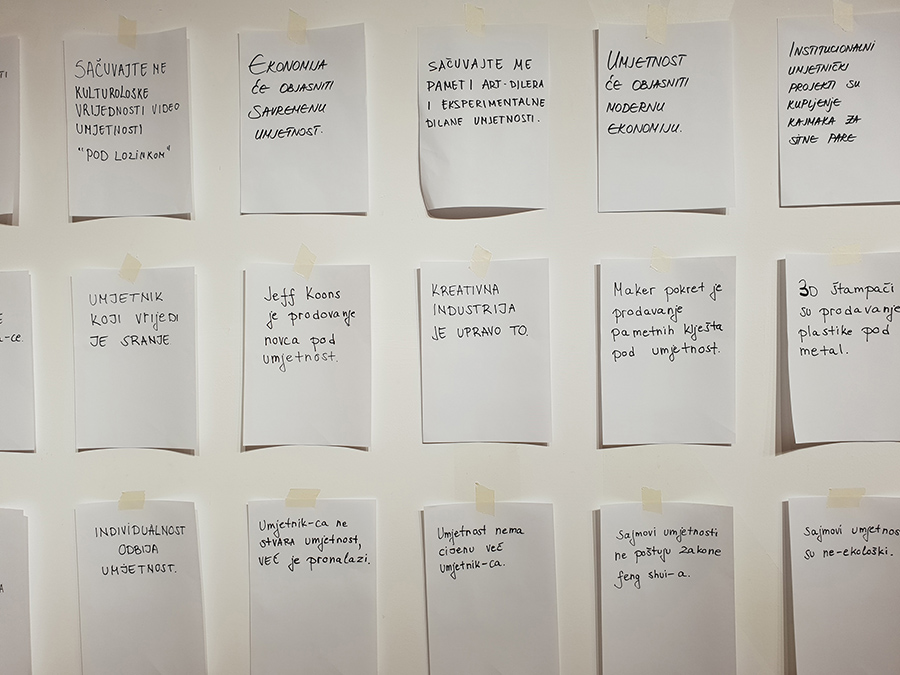 TI
SAČUVAJTE ME
KULTUROLOŠKE
VRIJEDNOSTI VIDEO
UMJETNOSTI
"POD LOZINKOM"
EKONOMIJA
ĆE OBJASNITI
SAVREMENU
UMJETNOST.
SAČUVAJTE ME
PAMETI ART-DILERA
I EKSPERIMENTALNE
DILANE UMJETNOSTI.
UMJETNOST
ĆE OBJASNITI
MODERNU
EKONOMIJU.
INSTITUCIONALNI
UMJETNIČKI
PROJEKTI SU
KUPLJENJE
KAJMAKA ZA
SITNE PARE
E
a-ce.
UMJETNIK
KOJI VRIJEDI
JE SRANJE
Jeff Koons
je prodovanje
novca pod
umjetnost.
KREATIVNA
INDUSTRIJA
JE UPRAVO TO.
Maker pokret je
prodavanje
pametnih klješta
pod umjetnost.
3D štampači
su prodavanje
plastike pod
metal.
A
INDIVIDUALNOST
ODBIJA
UMJETNOST.
Umjetnik-ca ne
stvara umjetnost,
VEĆ je pronalazi.
Umjetnost nema
cijenu VEĆ
umjetnik-ca.
Sajmovi umjetnosti
ne poštuju zakone
feng shui-a.
Sajmovi umjetnos
su ne-ekološki.